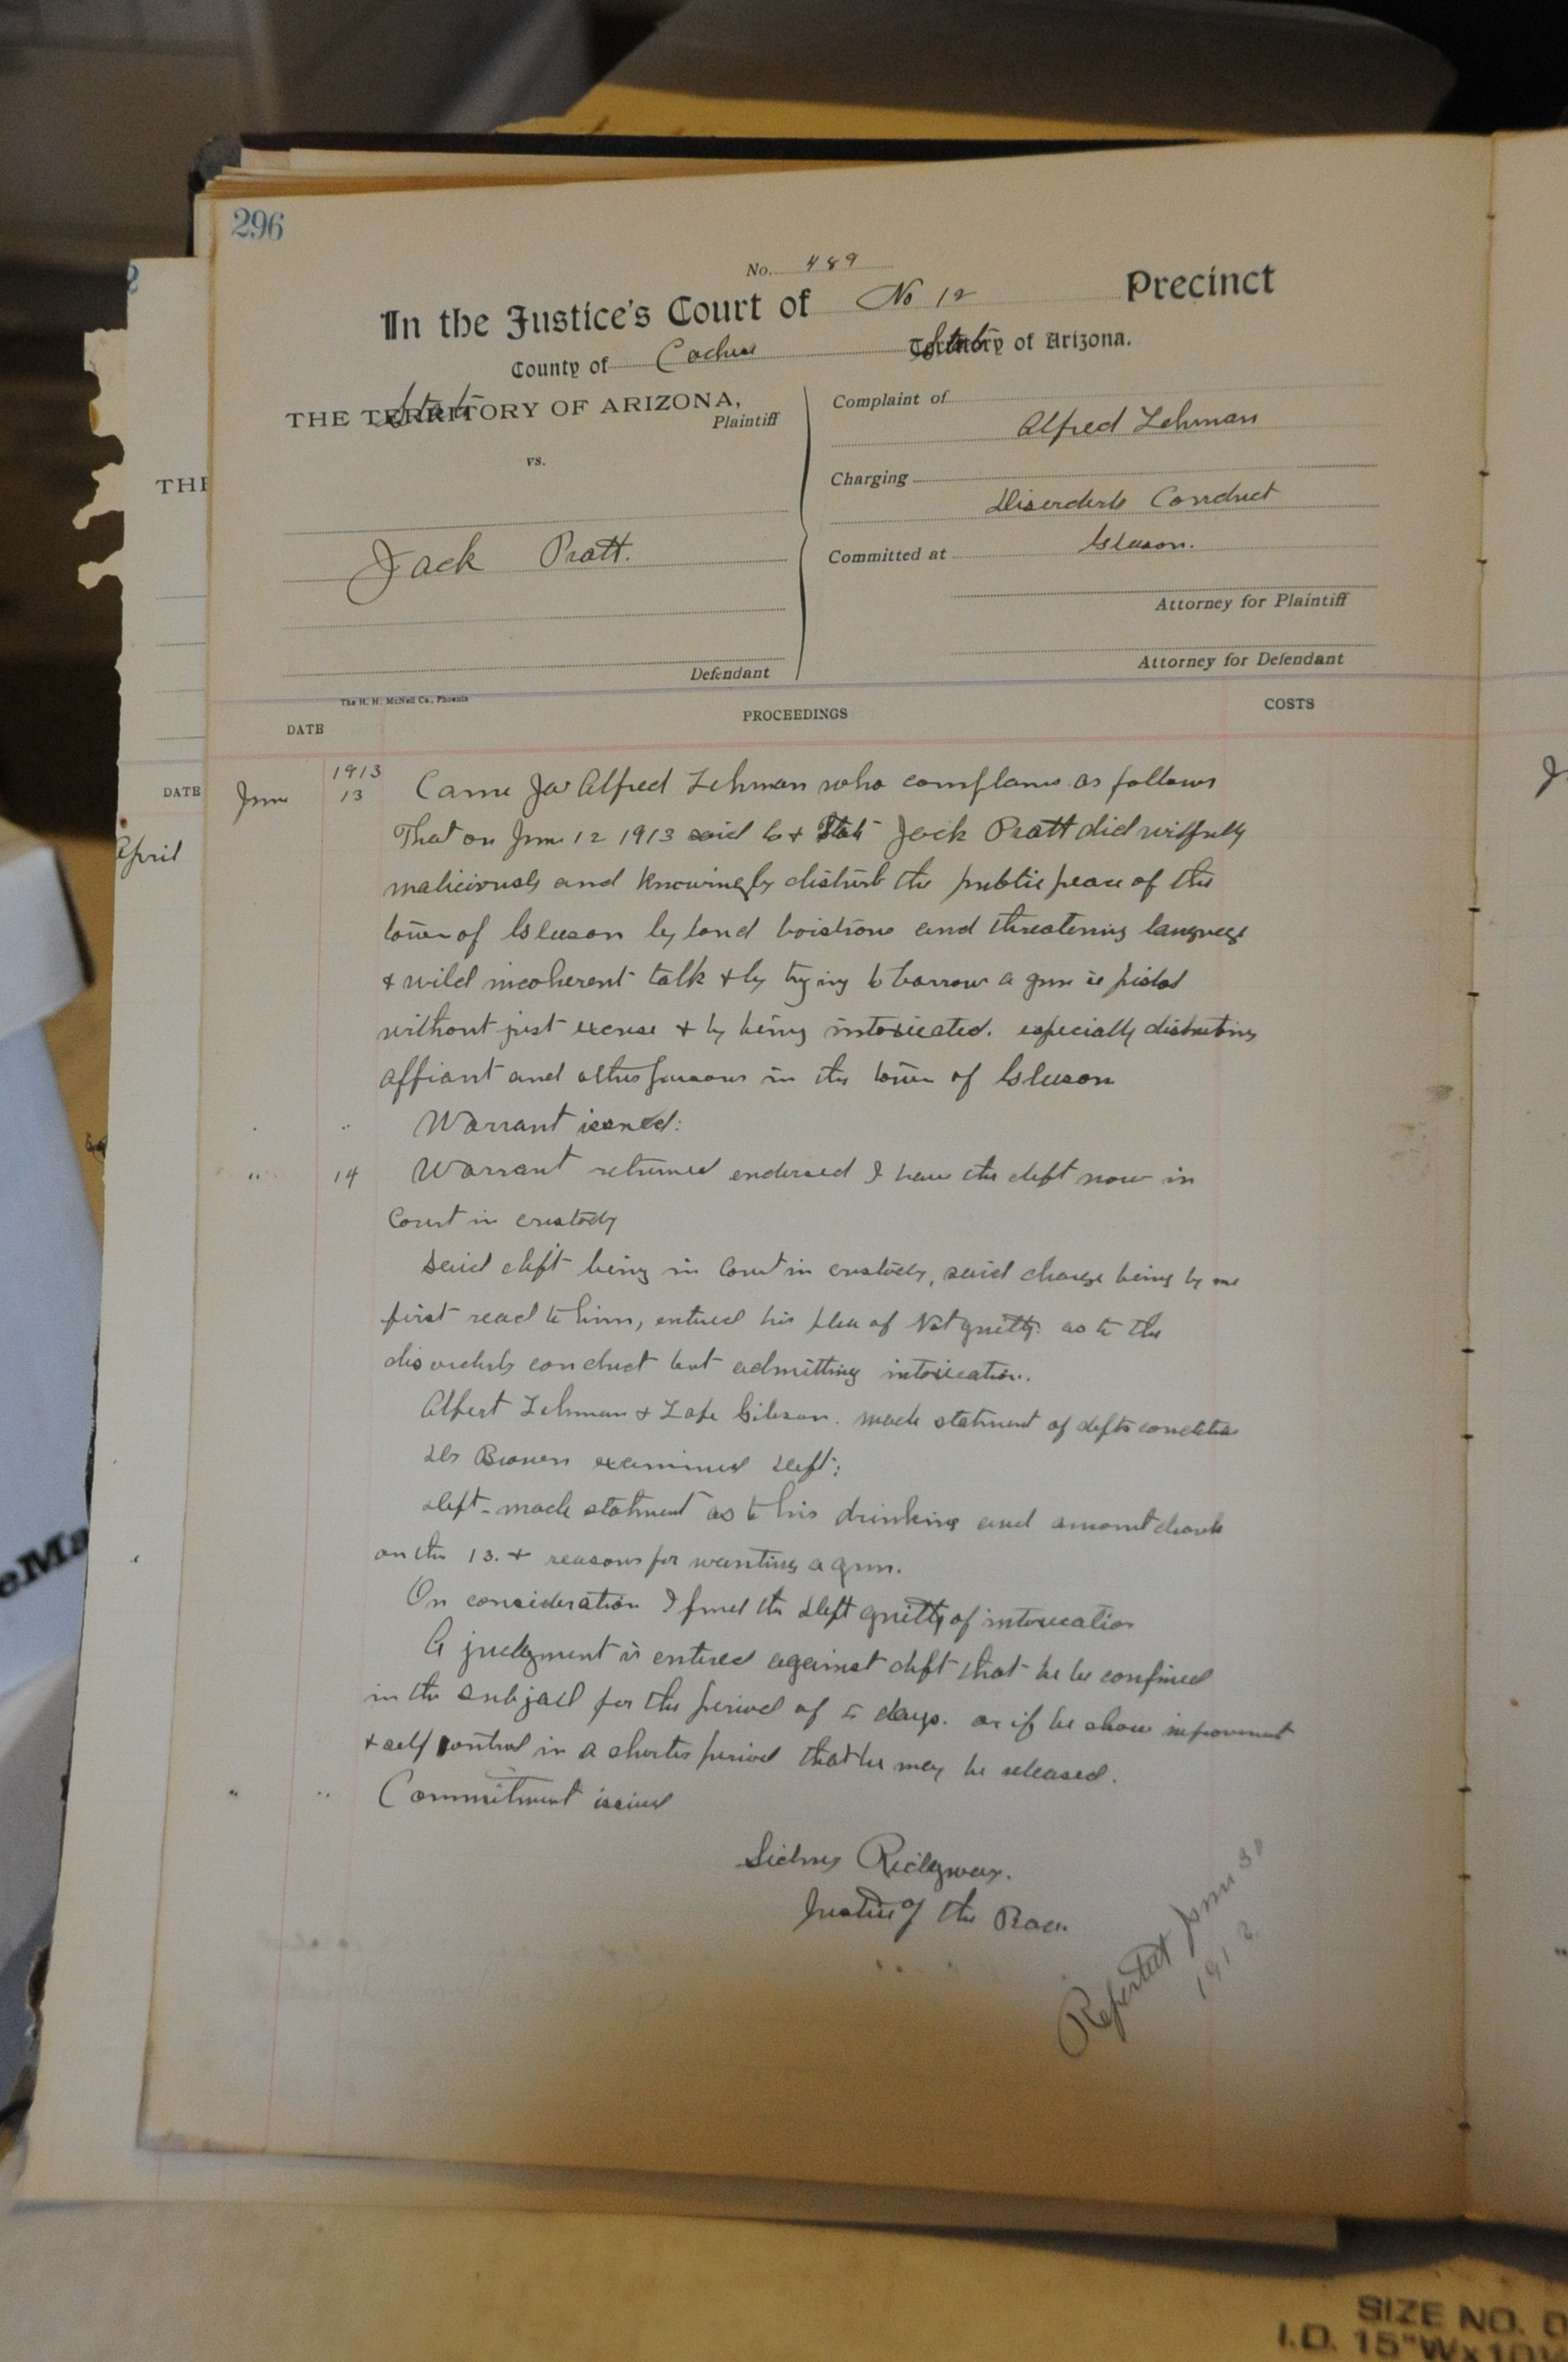 296
No. 489
In the Justice's Court of No 12 Precinct
County of Cochise State of Arizona.
THE State OF ARIZONA,
Plaintiff
vs.
Jack Pratt.
Defendant
Complaint of
Alfred Lehman
Charging
Disorderly Conduct
Committed at Gleason.
Attorney for Plaintiff
Attorney for Defendant
The H. H. McNeil Co., Phoenix
DATE PROCEEDINGS COSTS
1913
June 13 Came Alfred Lehman who complains as follows
That on June 12 1913 said Co & State Jack Pratt did wilfully
maliciously and knowingly disturb the public peace of the
town of Gleeson by loud boistrous and threatening language
& wild incoherent talk & by trying to borrow a gun ie pistol
without just excuse & by being intoxicated. especially disturbing
affiant and other persons in the town of Gleeson
" " Warrant issued:
" 14 Warrant returned endorsed I have the deft now in
Court in custody
Said deft being in Court in custody, said charge being by me
first read to him, entered his plea of Not guilty as to the
disorderly conduct but admitting intoxication.
Albert Lehman & Lafe Gibson. made statment of defts condition
Dr Brown examined Deft:
Deft made statment as to his drinking and amount drank
on the 13. & reasons for wanting a gun.
On consideration I find the Deft guilty of intoxication
A judgment is entered against deft that he be confined
in the subjail for the period of 5 days. or if he show improvment
& self control in a shorter period that he may be released.
" " Commitment issued
Sidney Ridgway.
Justice of the Peace.
Reported June 30
1913
2
THE
DATE
April
eMa
SIZE NO. 0
I.D. 15"Wx10